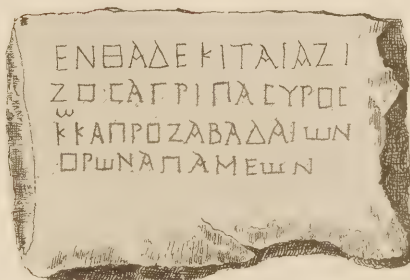 ΕΝΘΑΔΕΚΙΤΑΙΑΖΙ
ΖΟϹΑΓΡΙΠΑϹΥΡΟϹ
ω
ΚΚΑΠΡΟΖΑΒΑΔΑΙωΝ
ΟΡωΝΑΠΑΜΕωΝ